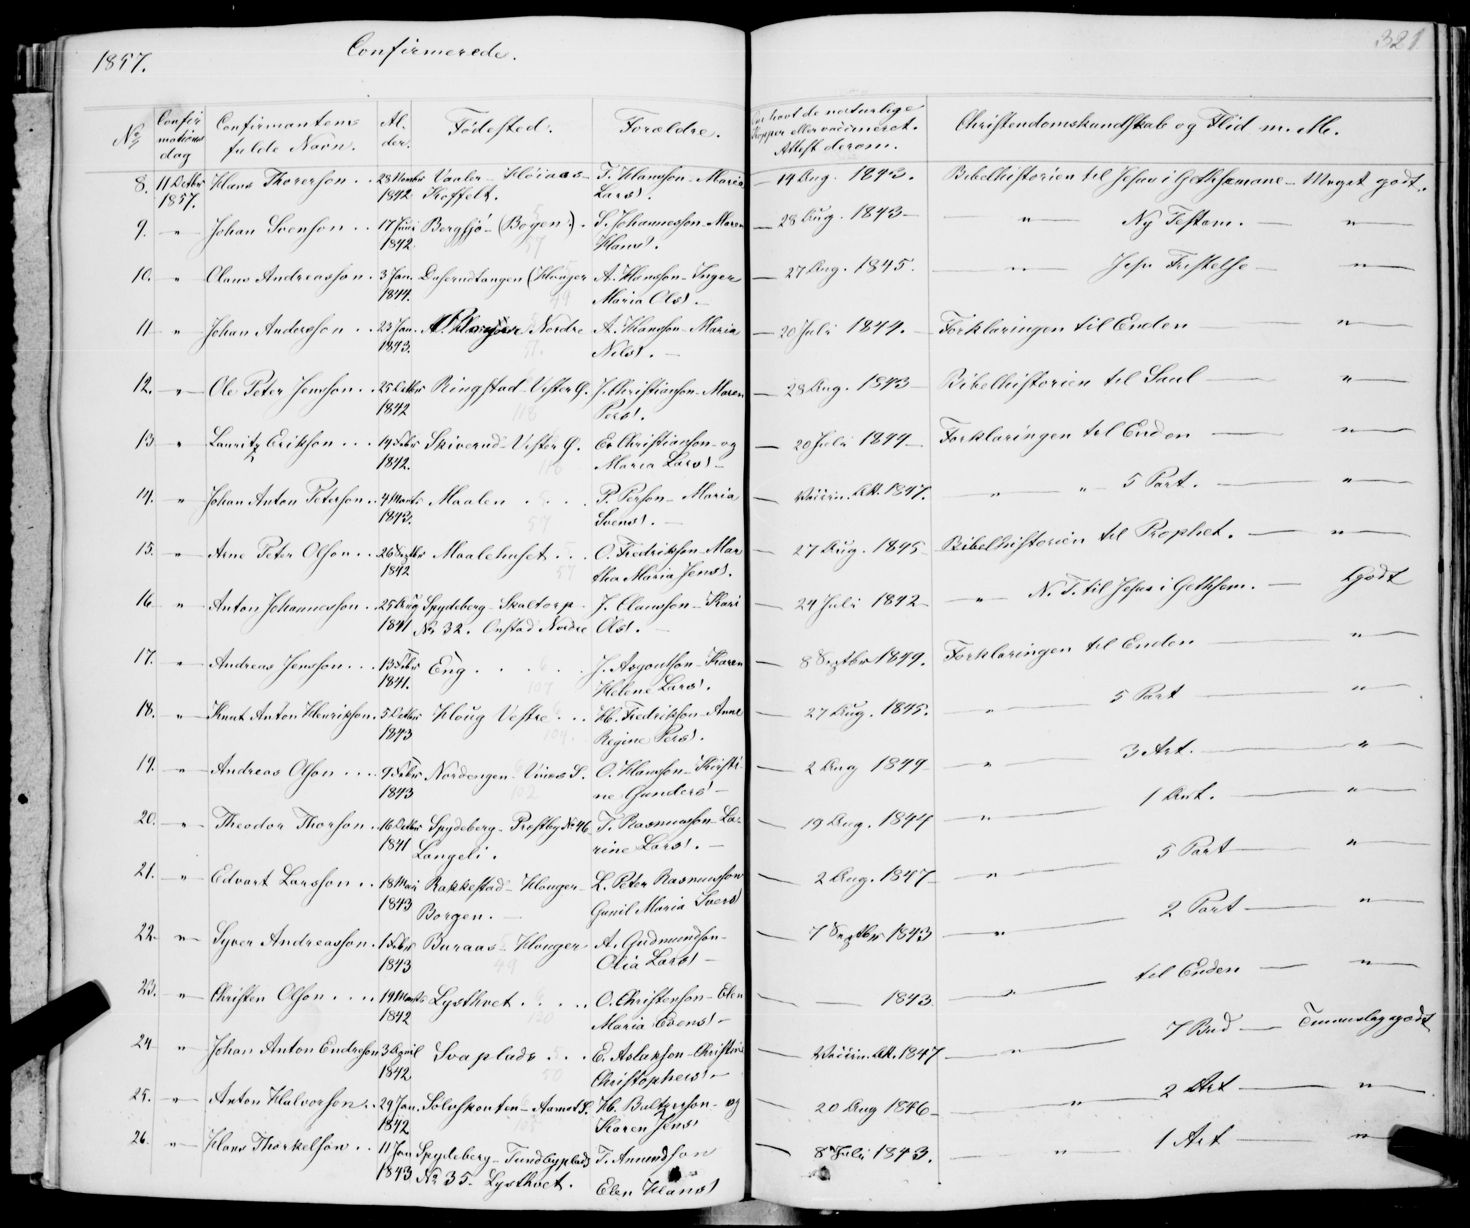 1857.
Confirmerede.
321
No
Confirmationsdag
Confirmantens fulde Navn.
Alder.
Fødested.
Forældre.
havt de naturlige Kopper eller vaccineret. Attest derom.
Christendomskundskab og Flid m. M.
8. 11 Octbr 1857. Hans Thorerson .. 28 1842 Vaaler - Høiaas - Koffelt. T. Hansson - Maria Larsd. — 14 Aug. 1843. Bibelhistorien til Jesus i Gethsemane - Meget godt.
9. " Johan Svenson .. 17 Juni 1842 Bergsjø - (Bogen). S. Johannesson - Maren Hansd. — 28 Aug. 1843 — " Ny Testam. — "
10. " Olaus Andreasson . 3 Jan. 1844. (Houger A. Hansson - Inger Maria Olsd. — 27 Aug. 1845. — " — Jesu Fristelse — "
11 " Johan Anderson .. 23 Jan. 1843. Nordre A. Hansson - Maria Nilsd. — 20 Juli 1844. — Forklaringen til Enden — "
12. " Ole Peter Jensson . 25 Octbr 1842 Ringstad - Vester G. J. Christianson - Maren Persd. — 28 Aug. 1843 — Bibelhistorien til Saul — "
13 " Lauritz Erikson ... 14 Febr 1842. Skiverud - Vester G. Er. Christianson - og Maria Larsd — 20 Juli 1844 — Forklaringen til Enden — "
14. " Johan Anton Peterson .. 4 Marts 1843. Maalen ... P. Person - Maria Svensd. — Vaccin. Att. 1847. — " " 5 Part. — "
15. " Arne Peter Olson .. 26 Septbr 1842 Maalehuset ... O. Fredrikson - Martha Maria Jensd. — 27 Aug. 1845 Bibelhistorien til Prophet. — "
16 " Anton Johannesson . 25 Aug 1841 Spydeberg - Skaltorp - No 32. Onstad Nordre J. Olausson - Kari Olsd. — 24 Juli 1842 — " N. T. til Jesus i Gethsem. — Godt
17. " Andreas Jensson ... 13 Febr 1841. Eng .... J. Asgoutson - Karen Helene Larsd. — 8 Septbr 1849. Forklaringen til Enden — "
18. " Knut Anton Henrikson . 5 Octbr 1843 Houg Vestre ... H. Fredrikson - Anne Regine Persd. — 27 Aug. 1845. " 5 Part — "
19. " Andreas Olson ... 9 Febr 1843 Nordengen - Vines S. O. Hansson - Kirstine Gundersd — 2 Aug 1849 — " 3 Art. — "
20. " Theodor Thorson . 16 Octbr 1841 Spydeberg - Prestby No 46 Langeli. T. Rasmusson - Larine Larsd. — 19 Aug. 1844 — " 1 Art. — "
21. " Edvart Larsson .. 18 Mai 1843 Rakkestad - Houger - Borgen. — L. Peter Rasmusson Gunil Maria Iversd 2 Aug. 1847 — " 5 Part — "
22. " Syver Andreasson . 1 Febr 1843 Buraas - Houger A. Gudmundson - Olia Larsd — 7 Septbr 1843 — " 2 Part — "
23. " Christen Olson .... 19 Marts 1842 Lysthvet .... O. Christenson - Elen Maria Evensd — — 1843. — " til Enden — "
24 " Johan Anton Endreson 3 April 1842 Svaplads ... E. Aslakson - Christine Christophersd — Vaccin. Att. 1847 — " 7 Bud — Temmelig godt
25. " Anton Halvorson .. 29 Jan. 1842 Solvskouten - Aamot S. H. Baltersson - og Karen Jensd 20 Aug 1846 — " 2 Art — "
26. " Hans Thorkelson .. 11 Jan 1843 Spydeberg - Tundbyplads No 35. Lysthvet. T. Amundson Elen Hansd 8 Juli 1843. — " 1 Art — "